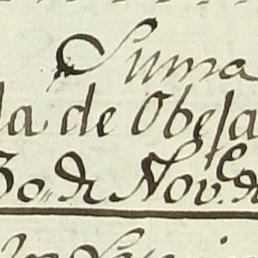 Suma
la de Obeja
30„ de Nov.e de